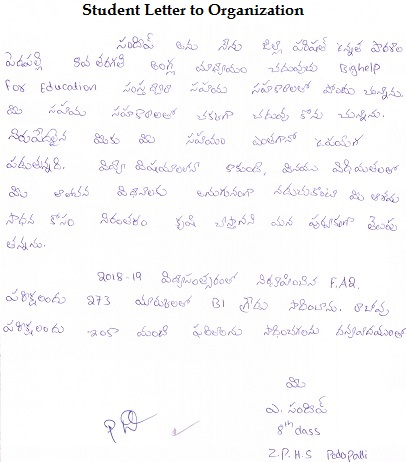 Student Letter to Organization
సందీప్ అను నేను జిల్లా పరిషత్ ఉన్నత పాఠశాల
పెదపల్లి 8వ తరగతి ఆంగ్ల మాధ్యమం చదువుచు Bighelp
For Education సంస్థ ద్వారా సహాయ సహకారాలలో పొందు చున్నాను.
మీ సహాయ సహకారాలతో చక్కగా చదువు కొను చున్నాను.
మీకు మీ సహాయం ఎంతగానో
పడుతున్నది. విద్యా కాకుండా,
మీ అనుగుణంగా నడుచుకుంటూ మీ ఆశయ
సాధన కోసం నిరంతరం కృషి చేస్తానని మన తెలుపు
తున్నాను.
2018-19 విద్యాసంవత్సరంలో నిర్వహించిన F.A2.
పరీక్షలందు 273 మార్కులతో B1 గ్రేడు సాధించాను. రాబోవు
పరీక్షలందు ఇంకా మంచి ఫలితాలను
మీ
ఎ. సందీప్
8th class
Z.P.H.S Pedapalli